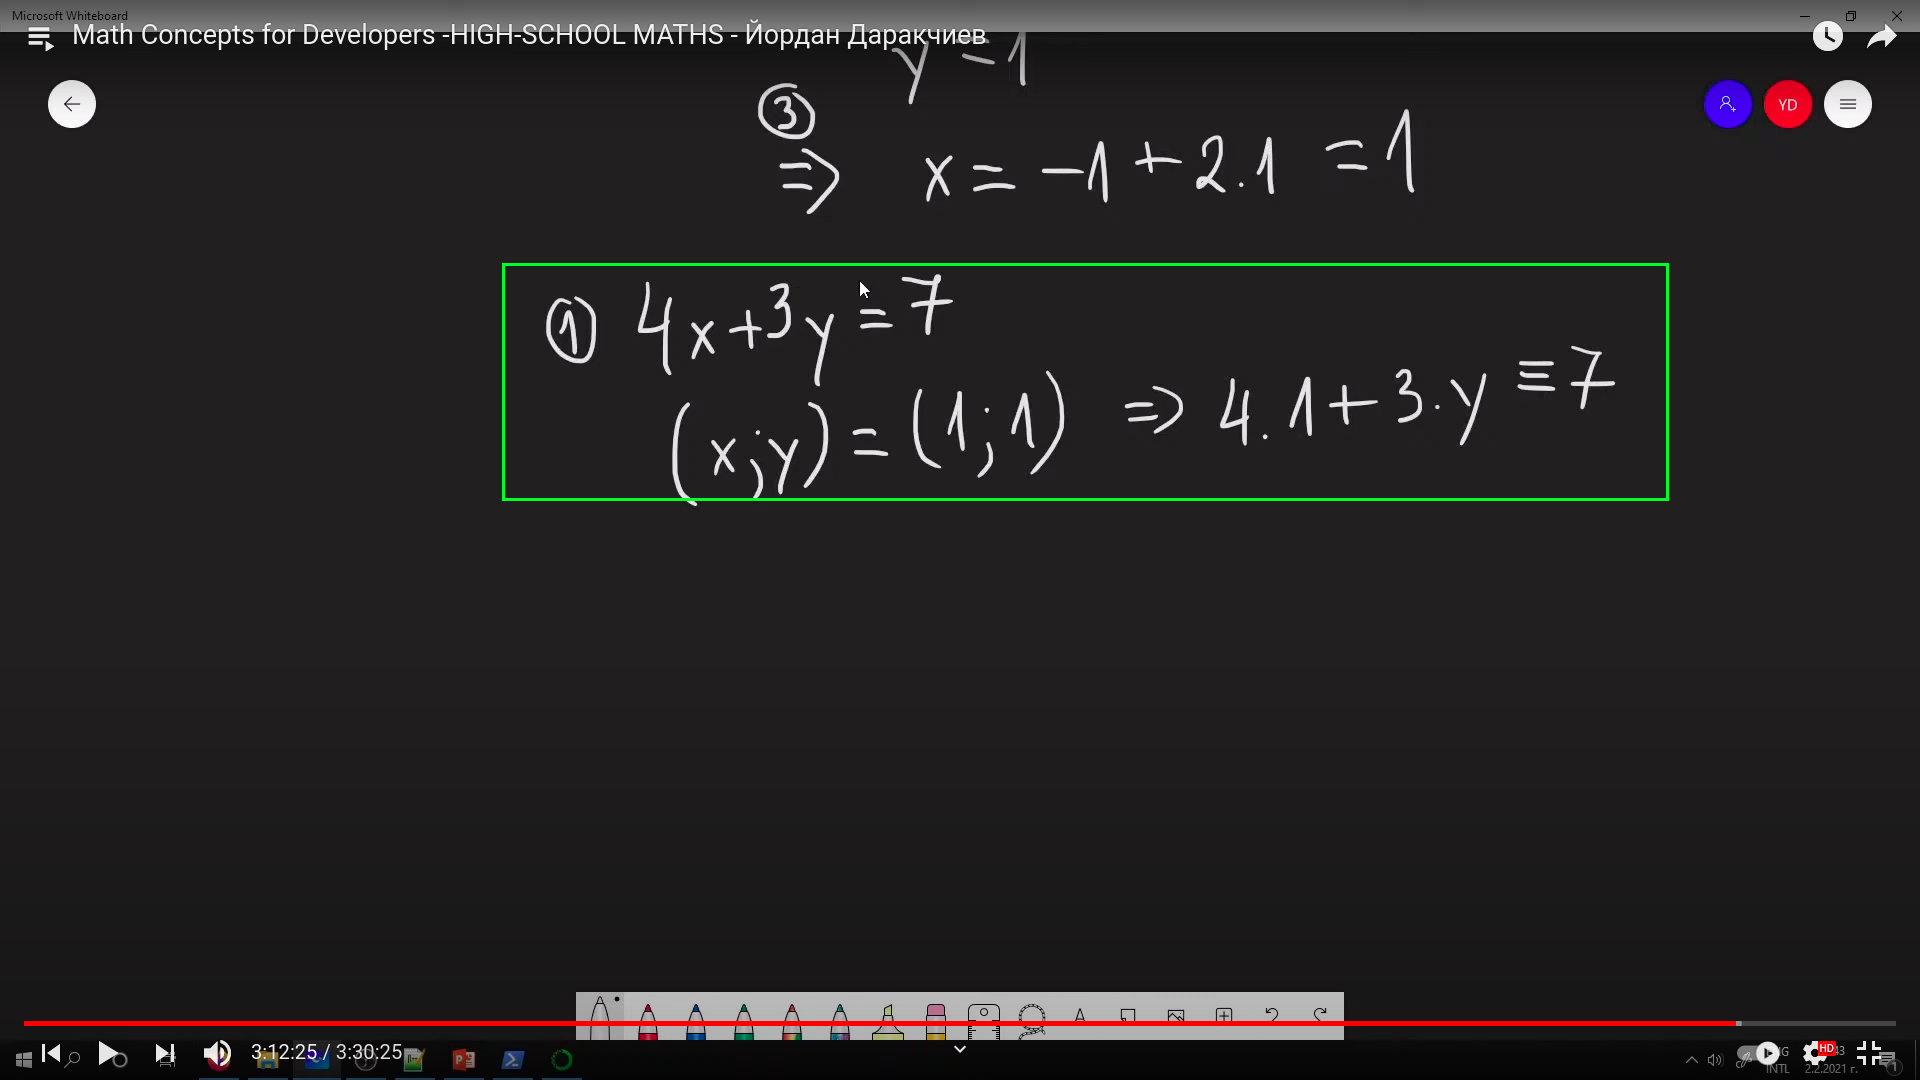 Microsoft Whiteboard
Math Concepts for Developers -HIGH-SCHOOL MATHS - Йордан Даракчиев
y = 1
③
YD
⇒ x = -1 + 2.1 = 1
① 4x+3y=7
(x;y) = (1;1) ⇒ 4.1+3.y≡7
3:12:25 / 3:30:25
HD
INTL
2.2.2021 г.